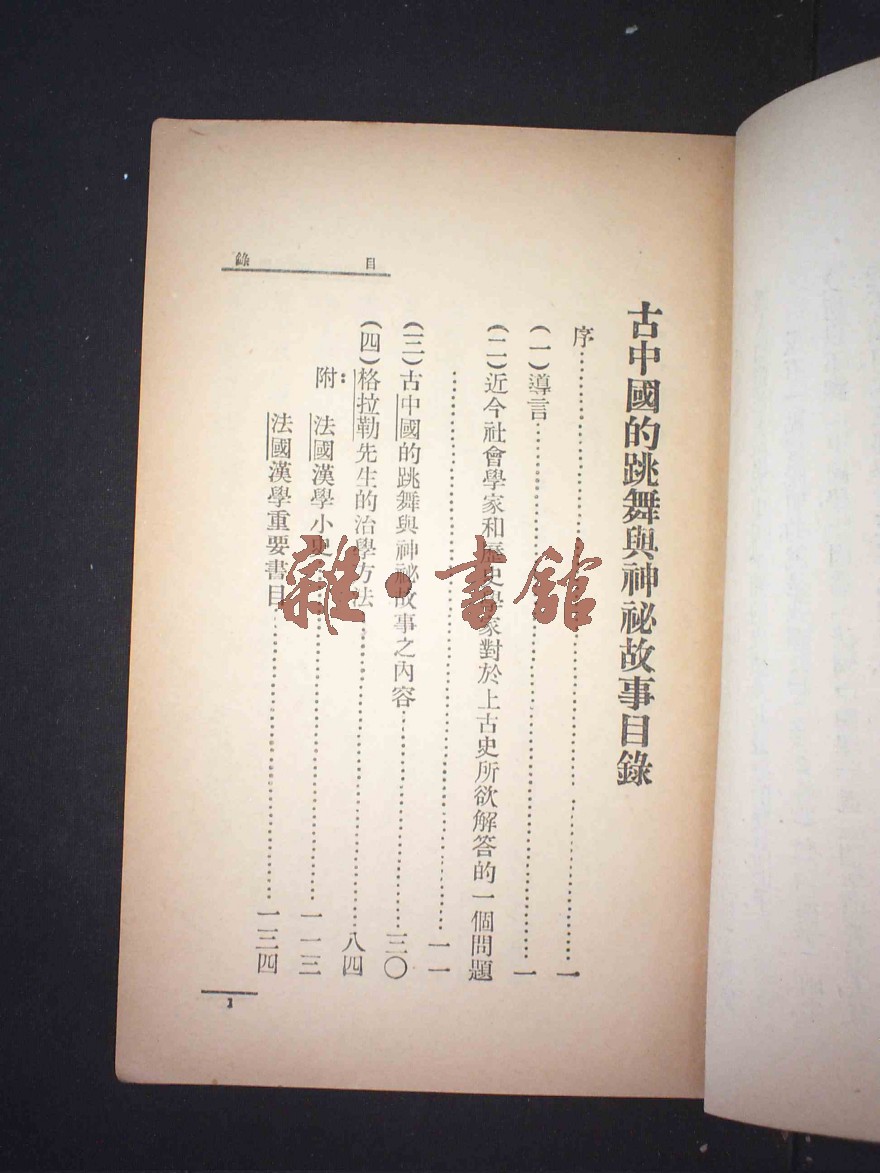 古中國的跳舞與神祕故事目錄
序……一
(一)導言……一
(二)近今社會學家和歷史學家對於上古史所欲解答的一個問題
……一一
(三)古中國的跳舞與神祕故事之內容……三〇
(四)格拉勒先生的治學方法……八四
附:法國漢學小史……一一三
法國漢學重要書目……一三四
目錄
1
雜·書館